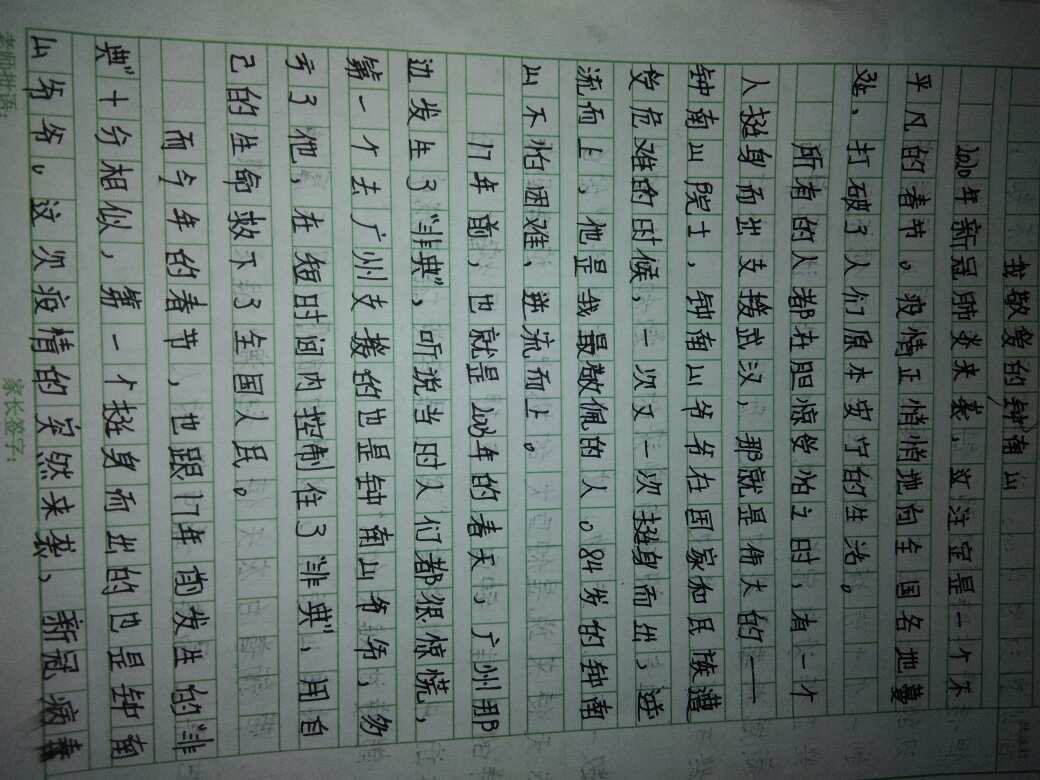 我敬爱的钟南山
2020年新冠肺炎来袭，这注定是一个不
平凡的春节。疫情正悄悄地向全国各地蔓
延、打破了人们原本安宁的生活。
所有的人都在胆惊受怕之时，有一个
人挺身而出支援武汉，那就是伟大的——
钟南山院士，钟南山爷爷在国家和民族遭
受危难的时候，一次又一次挺身而出，逆
流而上，他是我最敬佩的人。84岁的钟南
山不怕困难、逆流而上。
17年前，也就是2003年的春天，广州那
边发生了“非典”，听说当时人们都很惊慌，
第一个去广州支援的也是钟南山爷爷，多
亏了他，在短时间内控制住了“非典”，用自
己的生命救下了全国人民。
而今年的春节，也跟17年前发生的“非
典”十分相似，第一个挺身而出的也是钟南
山爷爷。这次疫情的突然来袭、新冠病毒
老师批语：
家长签字：